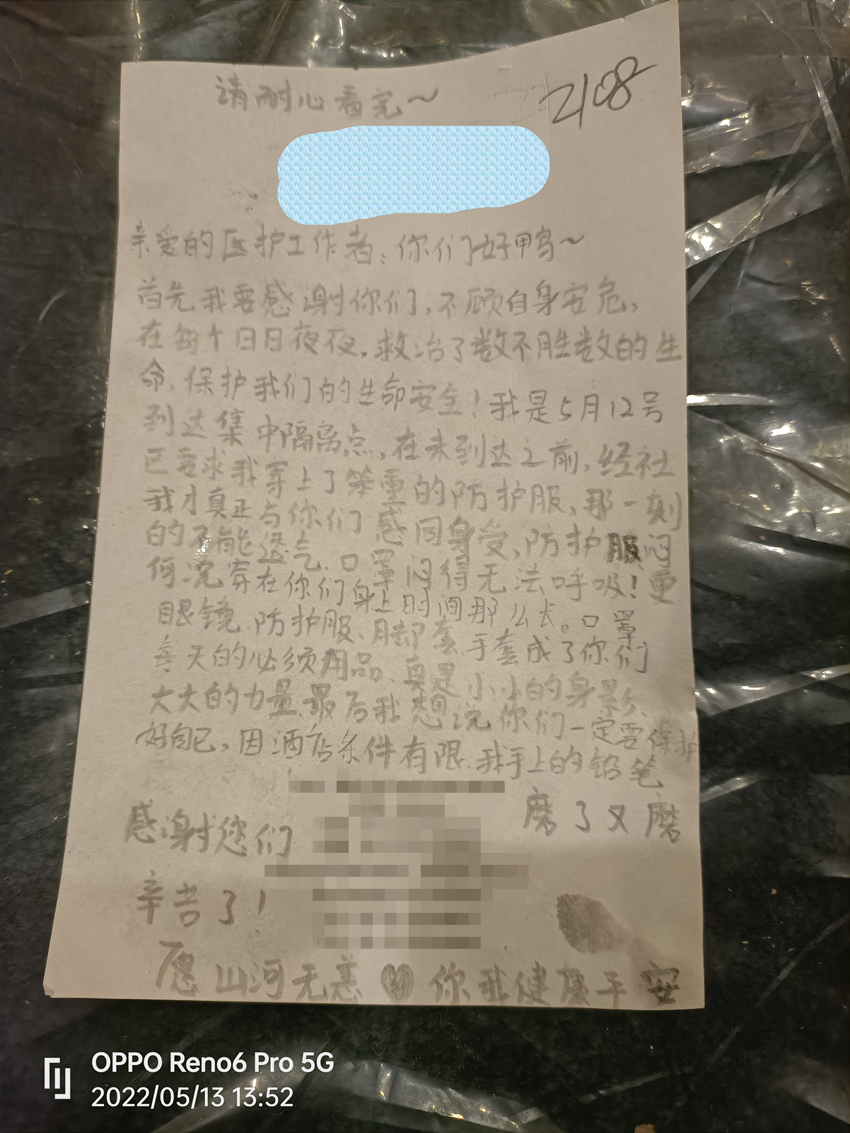 请耐心看完~
2108
亲爱的医护工作者:你们好鸭~
首先我要感谢你们,不顾自身安危,
在每个日日夜夜,救治了数不胜数的生
命,保护我们的生命安全!我是5月12号
到达集中隔离点,在未到达之前,经社
区要求我穿上了笨重的防护服,那一刻
我才真正与你们感同身受,防护服闷
的不能透气,口罩闷得无法呼吸!更
何况穿在你们身上时间那么长。口罩
眼镜、防护服、脚套、手套成了你们
每天的必须用品、真是小小的身影、
大大的力量.最后我想说你们一定要保护
好自己,因酒店条件有限.我手上的铅笔
磨了又磨
感谢您们
辛苦了!
愿山河无恙 你我健康平安
OPPO Reno6 Pro 5G
2022/05/13 13:52